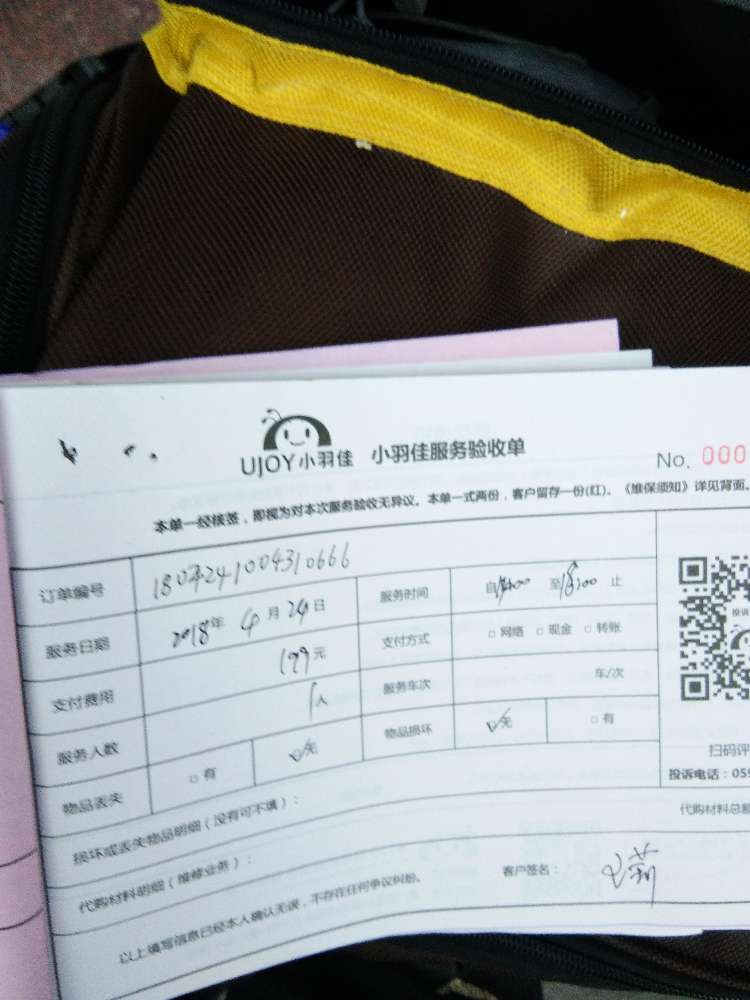 UJOY小羽佳 小羽佳服务验收单
No. 000
本单一经核签，即视为对本次服务验收无异议。本单一式两份，客户留存一份(红)。《维保须知》详见背面。
订单编号
服务日期 2018年 4月 24日 服务时间 自 至18:00 止
支付费用 199元 支付方式 □网络 □现金 □转账
服务人数 1人 服务车次 车/次
物品丢失 □有 ☑无 物品损坏 ☑无 □有
损坏或丢失物品明细（没有可不填）：
代购材料明细（维修业务）： 代购材料总
以上填写信息已经本人确认无误，不存在任何争议纠纷。 客户签名：
投诉
扫码评
投诉电话：059